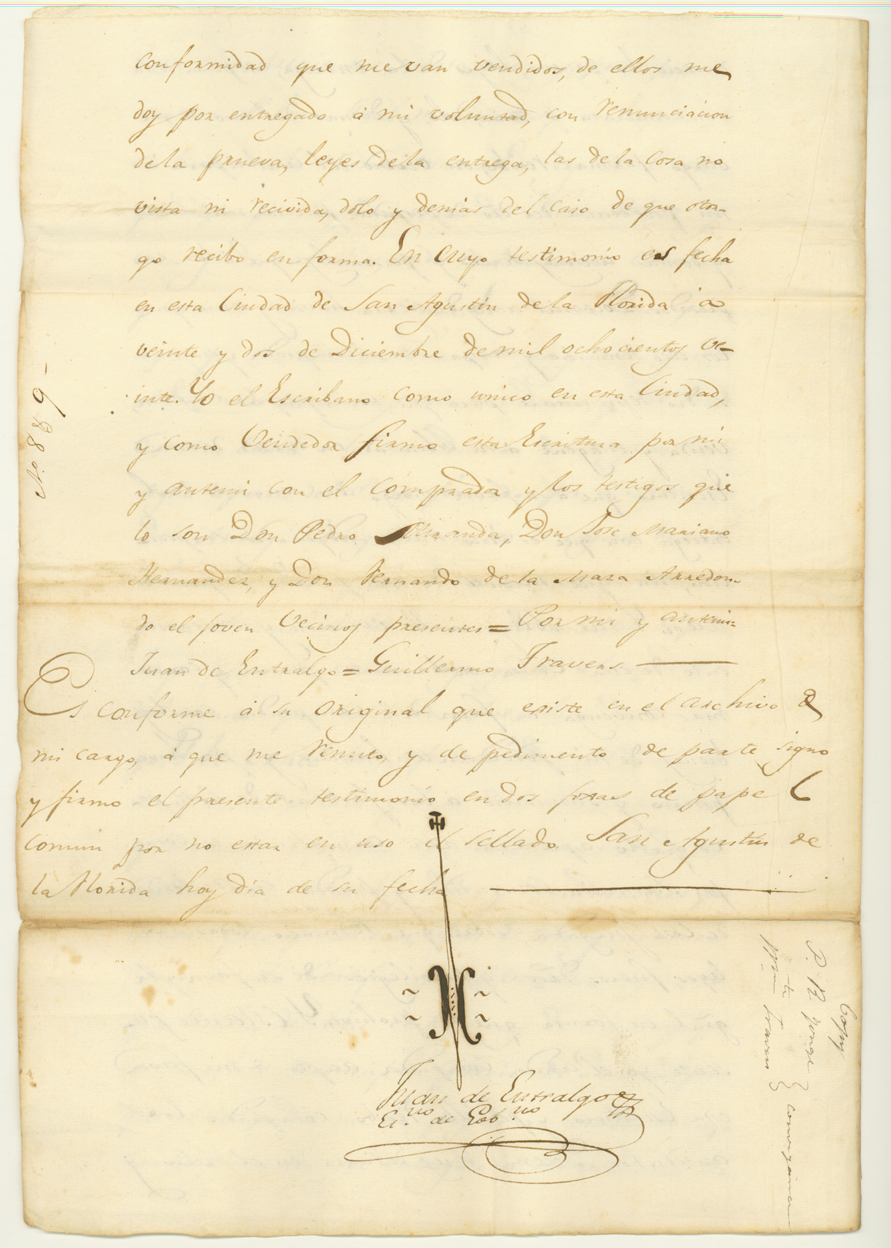 conformidad que me van vendidos, de ellos me
doy por entregado á mi voluntad, con renunciacion
de la prueva, leyes de la entrega, las de la cosa no
vista ni recivida, dolo y demas del caso de que otor-
go recibo en forma. En cuyo testimonio es fecha
en esta Ciudad de San Agustin de la Florida á
veinte y dos de Diciembre de mil ochocientos ve-
inte. Yo el Escribano como unico en esta Ciudad,
y como Vendedor firmo esta Escritura por mi
y antemi con el comprador y los testigos que
lo son Don Pedro Miranda, Don Jose Mariano
Hernandez, y Don Fernando de la Maza Arredon-
do el joven Vecinos presentes = Por mi y antemi =
Juan de Entralgo = Guillermo Travers
Es conforme á su original que existe en el archivo de
mi cargo, á que me remito, y de pedimento de parte signo
y firmo el presente testimonio en dos foxas de papel
comun por no estar en uso el sellado San Agustin de
la Florida hoy dia de su fecha
Juan de Entralgo
Esno. de Gobno
No. 889-
Copy
to
Wm Travers
conveyance